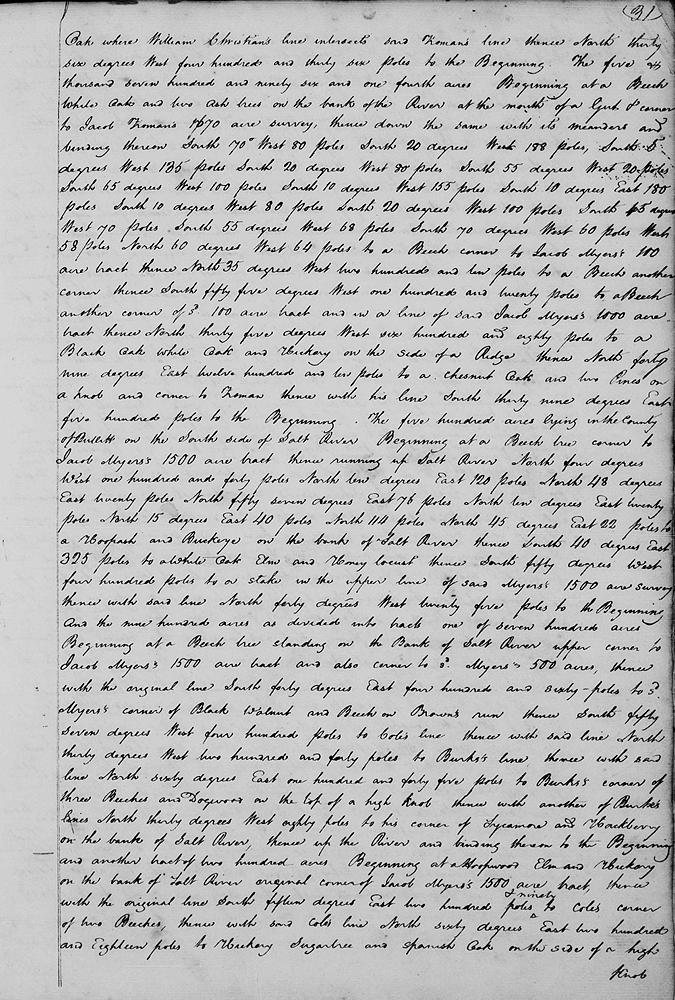 31
Oak where William Christian's line intersects said Froman's line thence North thirty
six degrees West four hundred and thirty six poles to the Beginning. The five
thousand seven hundred and ninety six and one fourth acres Beginning at a Beech
White Oak and two Ash trees on the bank of the River at the mouth of a Gut & corner
to Jacob Froman's acre survey, thence down the same with its meanders and
binding thereon South 70° West 80 poles South 20 degrees West 188 poles, South 5
degrees West 135 poles South 20 degrees West 80 poles South 55 degrees West 20 poles
South 65 degrees West 100 poles South 10 degrees West 155 poles South 10 degrees East 180
poles South 10 degrees West 80 poles South 20 degrees West 100 poles South degrees
West 70 poles South 55 degrees West 68 poles South 70 degrees West 60 poles West
58 poles North 60 degrees West 64 poles to a Beech corner to Jacob Myers's 100
acre tract thence North 35 degrees West two hundred and ten poles to a Beech another
corner thence South fifty five degrees West one hundred and twenty poles to a Beech
another corner of sd. 100 acre tract and in a line of said Jacob Myers's 1000 acre
tract thence North thirty five degrees West six hundred and eighty poles to a
Black Oak White Oak and Hickory on the side of a Ridge thence North forty
nine degrees East twelve hundred and ten poles to a Chesnut Oak and two Pines on
a knob and corner to Froman thence with his line South thirty nine degrees East
five hundred poles to the Beginning. The five hundred acres lying in the County
of Bullitt on the South side of Salt River Beginning at a Beech tree corner to
Jacob Myers's 1500 acre tract thence running up Salt River North four degrees
West one hundred and forty poles North ten degrees East 120 poles North 48 degrees
East twenty poles North fifty seven degrees East 76 poles North ten degrees East twenty
poles North 15 degrees East 40 poles North 114 poles North 45 degrees East 22 poles to
a Hoopash and Buckeye on the bank of Salt River thence South 40 degrees East
325 poles to a White Oak Elm and Honey locust thence South fifty degrees West
four hundred poles to a stake in the upper line of said Myers's 1500 acre survey
thence with said line North forty degrees West twenty five poles to the Beginning
And the nine hundred acres as divided into tracts one of seven hundred acres
Beginning at a Beech tree standing on the Bank of Salt River upper corner to
Jacob Myers's 1500 acre tract and also corner to sd. Myers's 500 acres, thence
with the original line South forty degrees East four hundred and sixty-poles to sd.
Myers's corner of Black Walnut and Beech on Brown's run thence South fifty
seven degrees West four hundred poles to Cole's line thence with said line North
thirty degrees West two hundred and forty poles to Burks's line thence with said
line North sixty degrees East one hundred and forty five poles to Burks's corner of
three Beeches and Dogwood on the top of a high Knob thence with another of Burks's
lines North thirty degrees West eighty poles to his corner of Sycamore and Hackberry
on the banks of Salt River, thence up the River and binding thereon to the Beginning
and another tract of two hundred acres Beginning at a Hoopwood Elm and Hickory
on the bank of Salt River original corner of Jacob Myers's 1500 acre tract, thence
with the original line South fifteen degrees East two hundred & ninety poles to Coles corner
of two Beeches, thence with said Coles line North sixty degrees East two hundred
and Eighteen poles to Hickory Sugartree and Spanish Oak on the side of a high
Knob